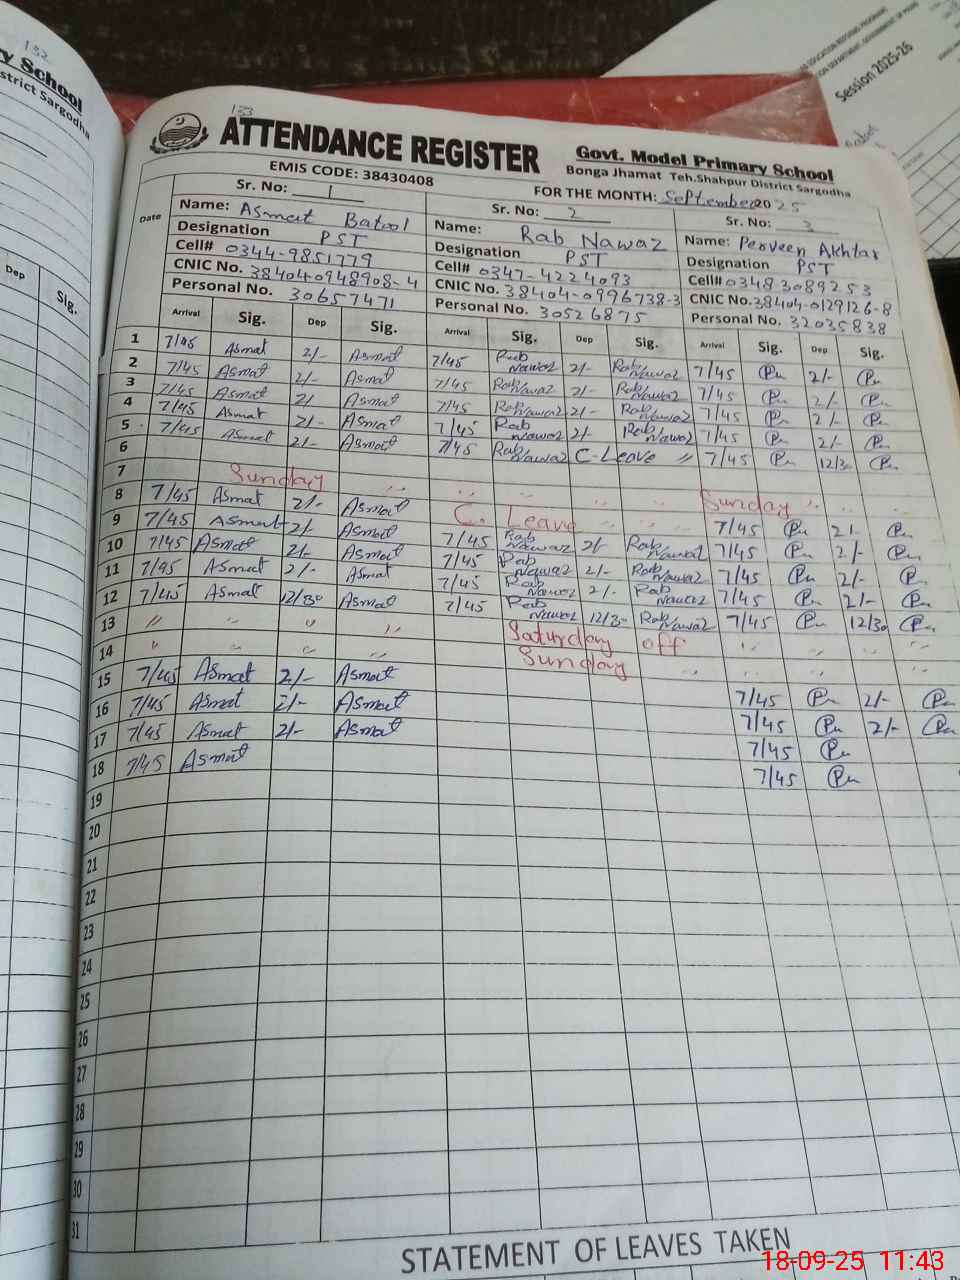 132
ry School
istrict Sargodha
Dep
Sig.
Session 2025-26
133
ATTENDANCE REGISTER
Govt. Model Primary School
EMIS CODE: 38430408
Bonga Jhamat Teh.Shahpur District Sargodha
FOR THE MONTH: September 2025
Date
Sr. No: 1
Name: Asmat Batool
Designation PST
Cell# 0344-9851779
CNIC No. 384040948908-4
Personal No. 30657471
Sr. No: 2
Name: Rab Nawaz
Designation PST
Cell# 0347-4224093
CNIC No. 38404-0996738-3
Personal No. 30526875
Sr. No: 3
Name: Perveen Akhtar
Designation PST
Cell# 03483089253
CNIC No. 38404-0129126-8
Personal No. 32035838
Arrival Sig. Dep Sig. Arrival Sig. Dep Sig. Arrival Sig. Dep Sig.
1 7/45 Asmat 2/- Asmat 7/45 Rab Nawaz 2/- Rab Nawaz 7/45 Pn 2/- Pn
2 7/45 Asmat 2/- Asmat 7/45 Rab Nawaz 2/- Rab Nawaz 7/45 Pn 2/- Pn
3 7/45 Asmat 2/- Asmat 7/45 Rab Nawaz 2/- Rab Nawaz 7/45 Pn 2/- Pn
4 7/45 Asmat 2/- Asmat 7/45 Rab Nawaz 2/- Rab Nawaz 7/45 Pn 2/- Pn
5 7/45 Asmat 2/- Asmat 7/45 Rab Nawaz C-Leave " 7/45 Pn 12/30 Pn
6
7 Sunday " " " " " Sunday " "
8 7/45 Asmat 2/- Asmat C. Leave " " 7/45 Pn 2/- Pn
9 7/45 Asmat 2/- Asmat 7/45 Rab Nawaz 2/- Rab Nawaz 7/45 Pn 2/- Pn
10 7/45 Asmat 2/- Asmat 7/45 Rab Nawaz 2/- Rab Nawaz 7/45 Pn 2/- Pn
11 7/45 Asmat 2/- Asmat 7/45 Rab Nawaz 2/- Rab Nawaz 7/45 Pn 2/- Pn
12 7/45 Asmat 12/30 Asmat 7/45 Rab Nawaz 12/30 Rab Nawaz 7/45 Pn 12/30 Pn
13 " " " " Saturday off " " " "
14 " " " " Sunday " " " " "
15 7/45 Asmat 2/- Asmat 7/45 Pn 2/- Pn
16 7/45 Asmat 2/- Asmat 7/45 Pn 2/- Pn
17 7/45 Asmat 2/- Asmat 7/45 Pn
18 7/45 Asmat 7/45 Pn
19
20
21
22
23
24
25
26
27
28
29
30
31
STATEMENT OF LEAVES TAKEN
18-09-25 11:43